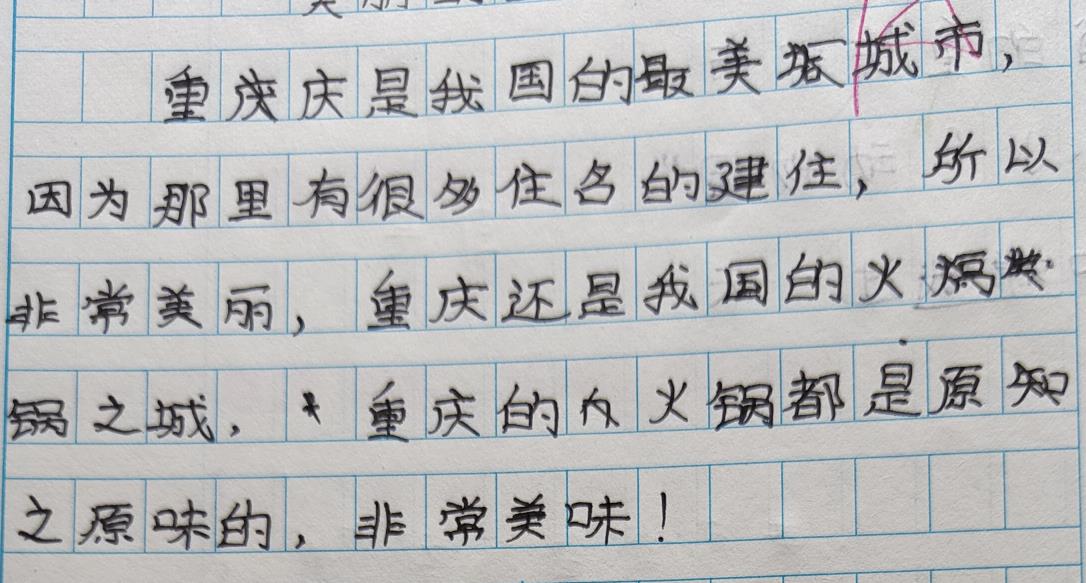 重庆庆是我国的最美城城市，
因为那里有很多住名的建住，所以
非常美丽，重庆还是我国的火
锅之城，重庆的火锅都是原知
之原味的，非常美味！